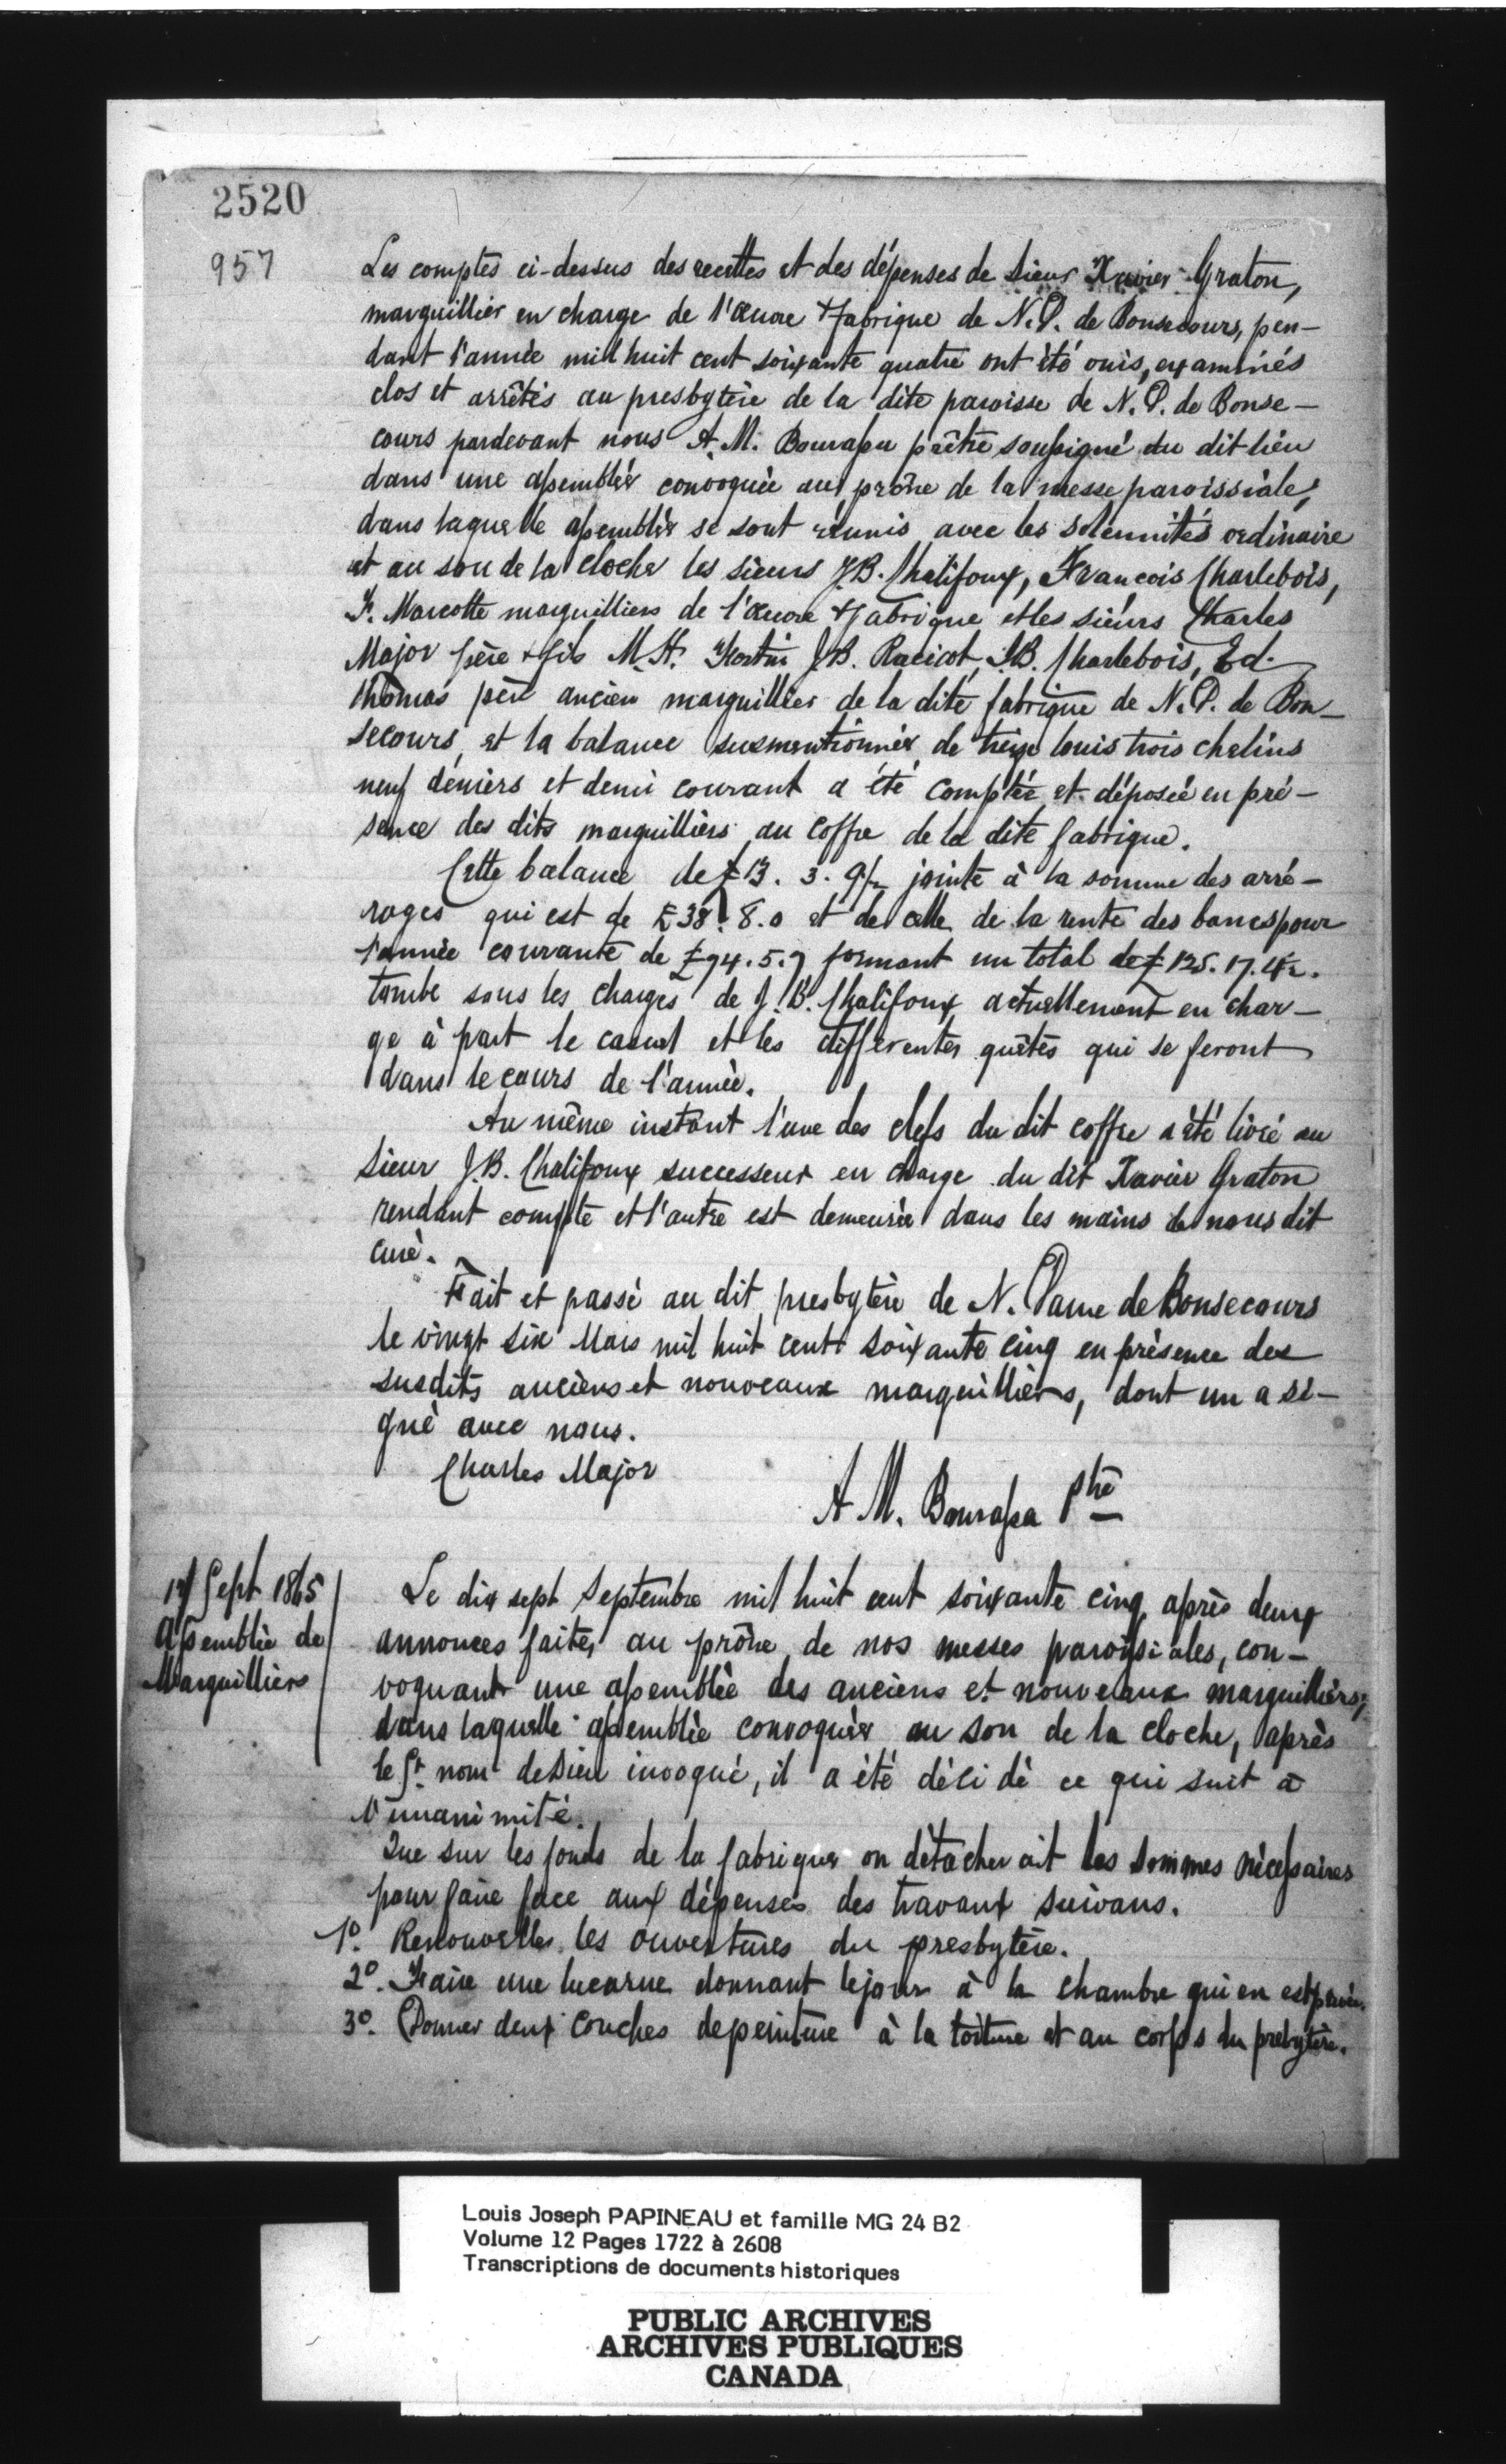 2520
957
Les comptes ci-dessus des recettes et des dépenses de Sieur Xavier Graton,
marguillier en charge de l'œuvre & fabrique de N.D. de Bonsecours, pen-
dant l'année mil huit cent soixante quatre ont été ouis, examinés
clos et arrêtés au presbytère de la dite paroisse de N. D. de Bonse-
cours pardevant nous A. M. Bourassa prêtre soussigné du dit lieu
dans une assemblée convoquée au prône de la messe paroissiale,
dans laquelle assemblée se sont réunis avec les solennités ordinaire
et au son de la cloche les sieurs J.B. Chalifoux, François Charlebois,
F. Marcotte marguilliers de l'œuvre & fabrique et les sieurs Charles
Major père & fils M. H. J.B. Racicot, J.B. Charlebois, Ed.
Thomas père ancien marguillier de la dite fabrique de N.D. de Bon-
secours et la balance susmentionnée de treize louis trois chelins
neuf deniers et demi courant a été comptée et déposée en pré-
sence des dits marguilliers au coffre de la dite fabrique.
Cette balance de £13. 3. 9½ jointe à la somme des arré-
rages qui est de £38. 8. 0 et de celle de la rente des bancs pour
l'année courante de £74. 5. 7 formant un total de £125. 17. 4½.
tombe sous les charges de J. B. Chalifoux actuellement en char-
ge à part le casuel et les différentes quêtes qui se feront
dans le cours de l'année.
Au même instant l'une des clefs du dit coffre a été livré au
Sieur J.B. Chalifoux successeur en charge du dit Xavier Graton
rendant compte et l'autre est demeurée dans les mains de nous dit
curé.
Fait et passé au dit presbytère de N. Dame de Bonsecours
le vingt six Mars mil huit cent soixante cinq en présence des
susdits anciens et nouveaux marguilliers, dont un a si-
gné avec nous.
Charles Major
A M. Bourassa Ptre
17 Sept 1865
Assemblée de
Marguilliers
Le dix sept Septembre mil huit cent soixante cinq, après deux
annonces faites au prône de nos messes paroissiales, con-
voquant une assemblée des anciens et nouveaux marguilliers,
dans laquelle assemblée convoquée au son de la cloche, après
le St. nom de Dieu invoqué, il a été décidé ce qui suit à
l'unanimité.
Que sur les fonds de la fabrique on détacherait les sommes nécessaires
pour faire face aux dépenses des travaux suivans.
1º. Renouveller les ouvertures du presbytère.
2º. Faire une lucarne donnant le jour à la chambre qui en est privée.
3º. Donner deux couches de peinture à la toiture et au corps du prebytère.
Louis Joseph PAPINEAU et famille MG 24 B2
Volume 12 Pages 1722 à 2608
Transcriptions de documents historiques
PUBLIC ARCHIVES
ARCHIVES PUBLIQUES
CANADA